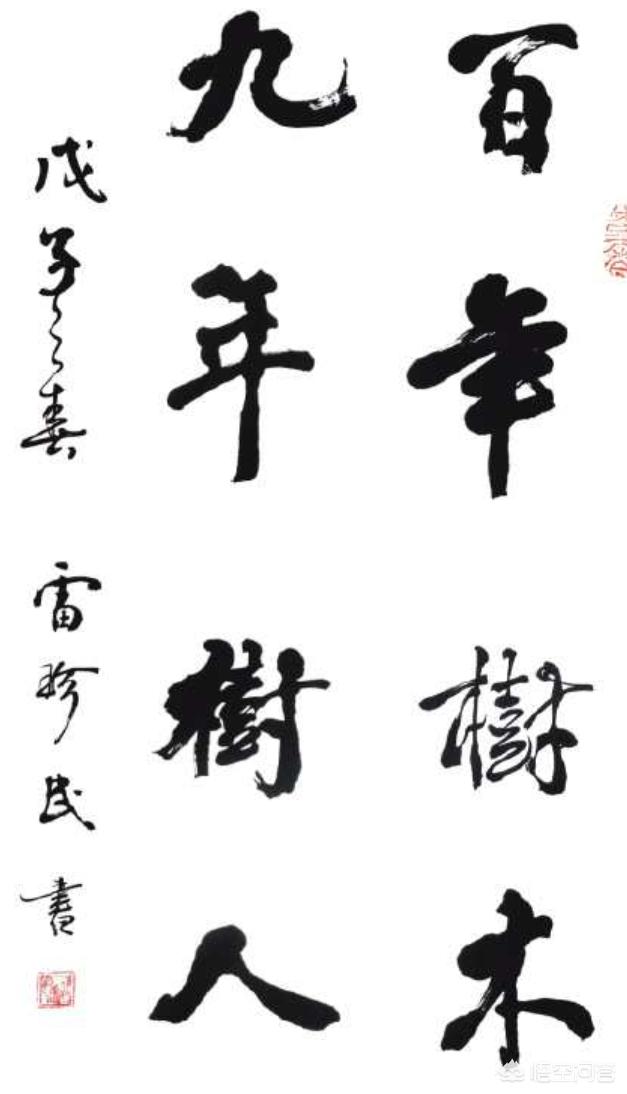 百年樹木
九年樹人
戊子之春
雷珍民書
悟空问答